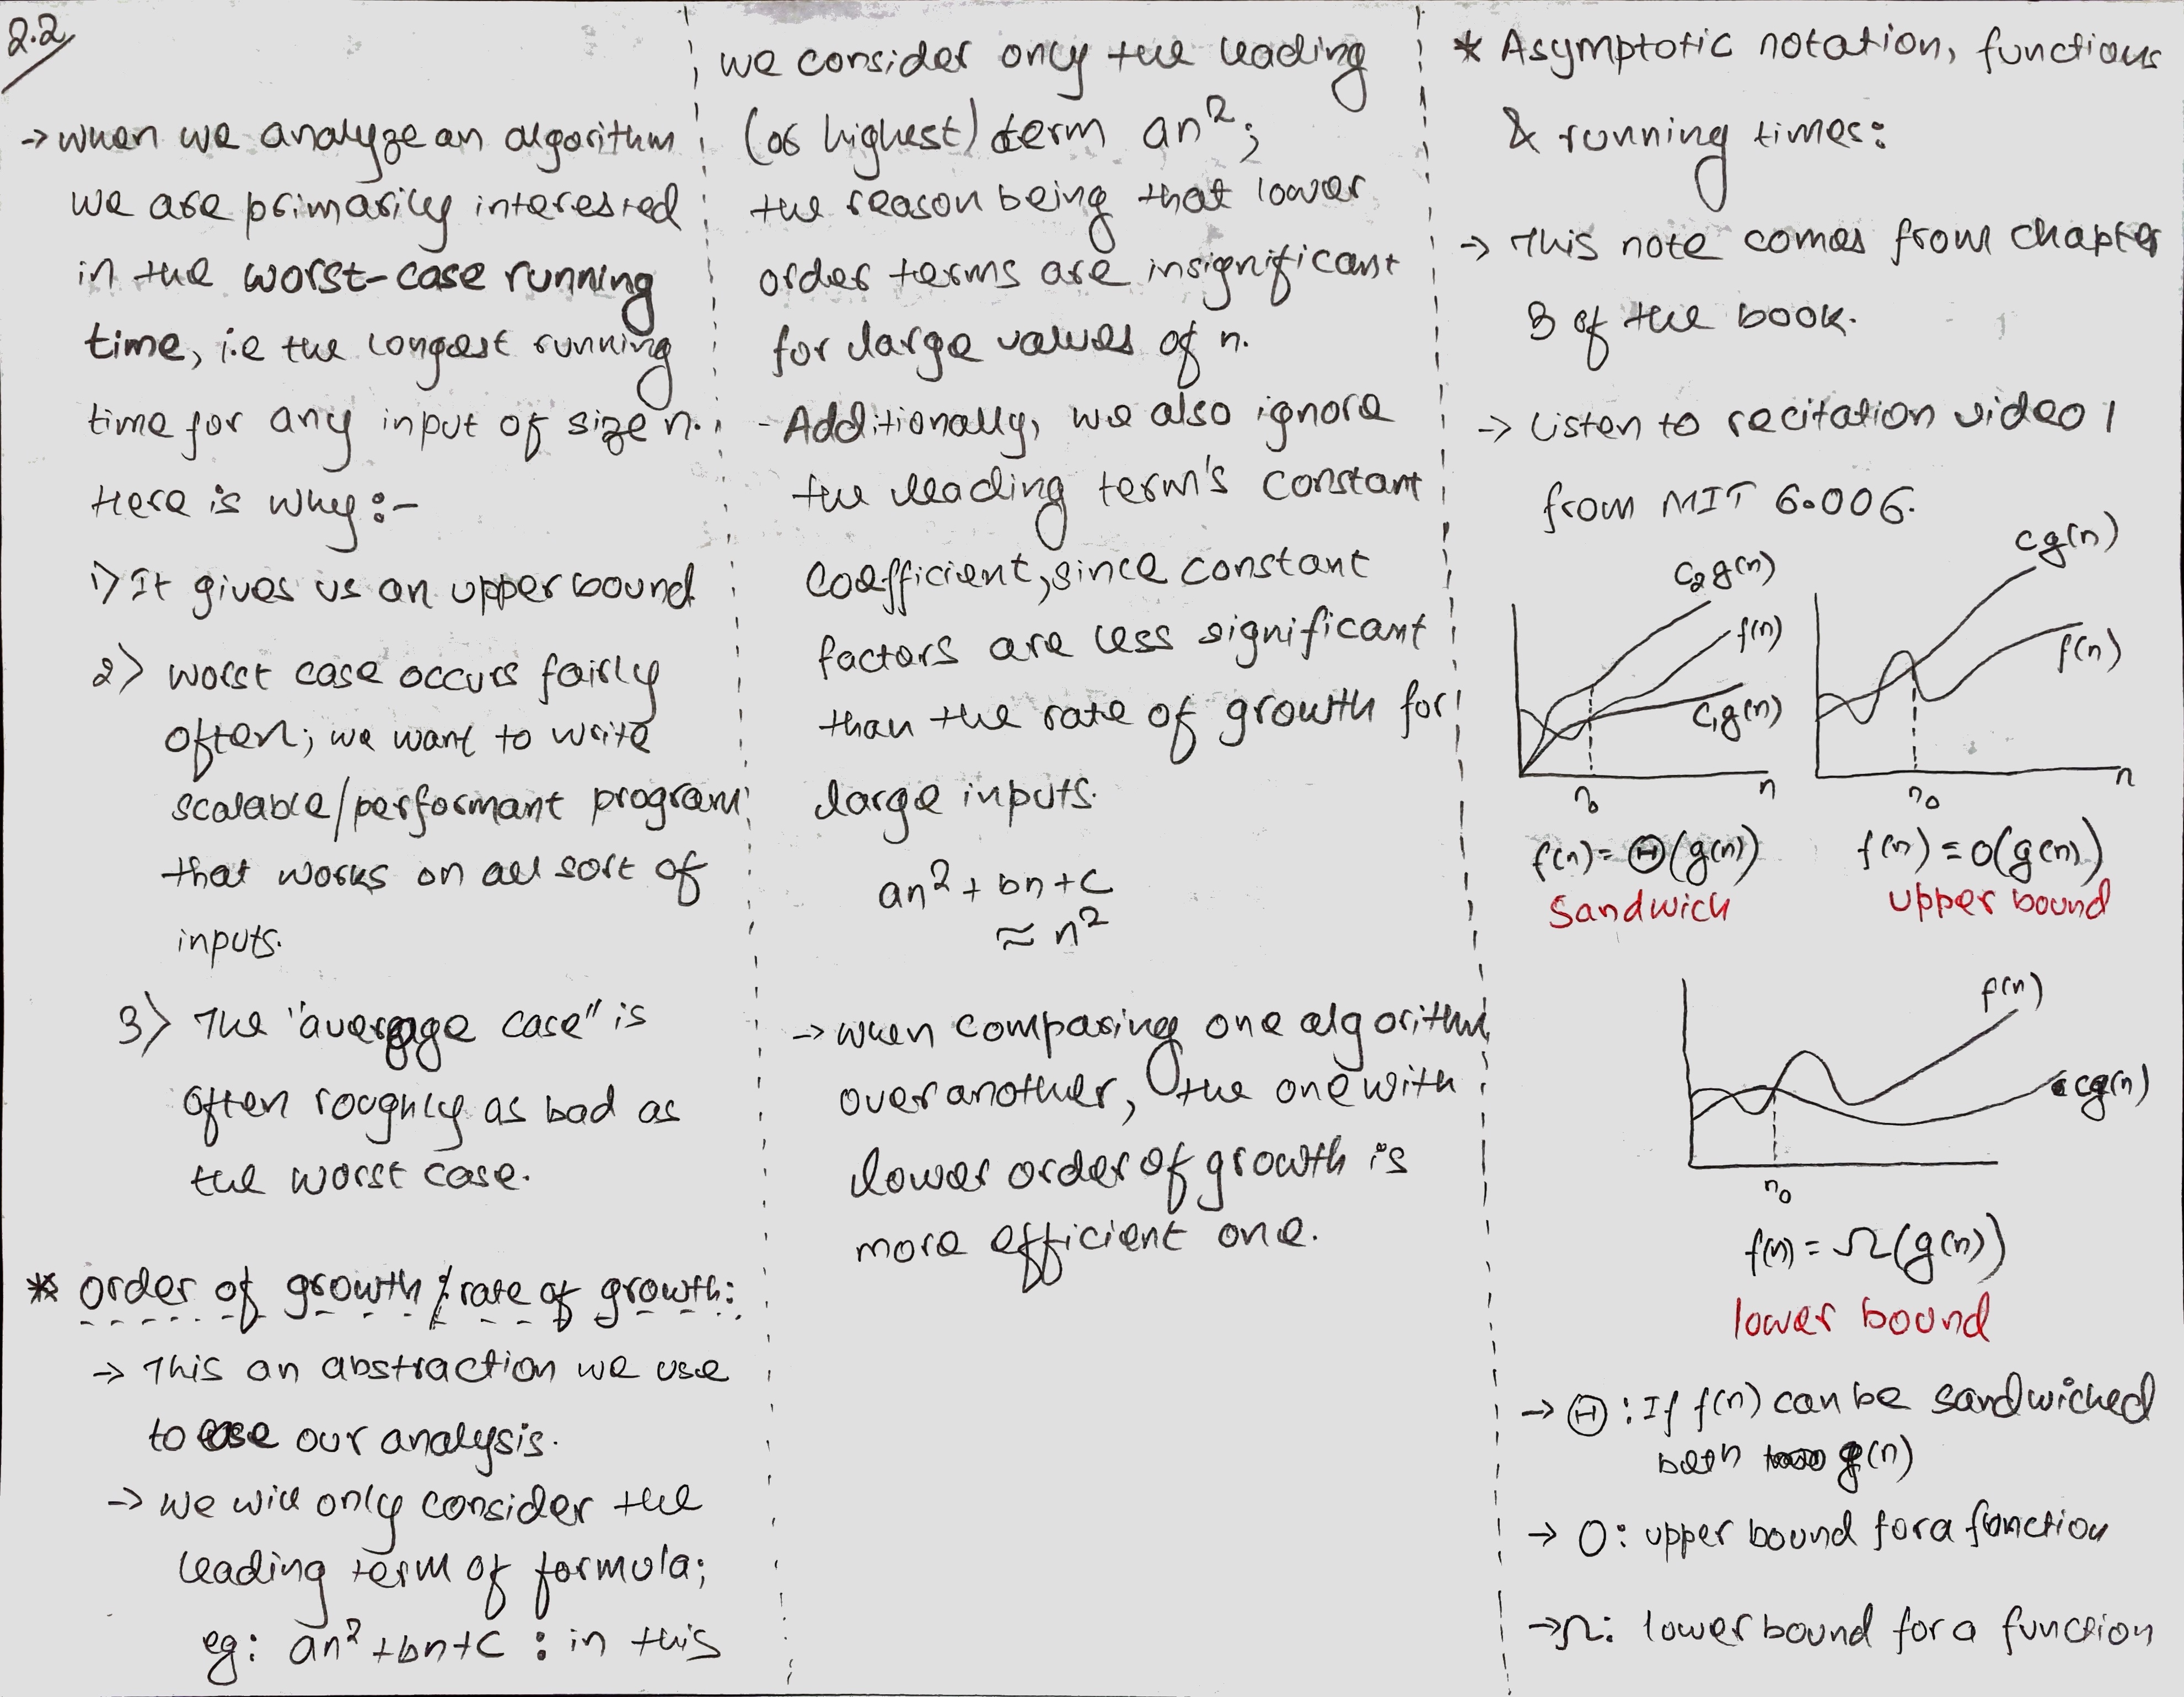 2.2
→ when we analyze an algorithm
we are primarily interested
in the worst-case running
time, i.e the longest running
time for any input of size n.
Here is why:-
1) It gives us an upper bound
2) worst case occurs fairly
often; we want to write
scalable/performant program
that works on all sort of
inputs.
3) The "average case" is
often roughly as bad as
the worst case.
* order of growth / rate of growth:
→ This an abstraction we use
to ease our analysis.
→ we will only consider the
leading term of formula;
eg: an² + bn + c : in this
we consider only the leading
(or highest) term an²;
the reason being that lower
order terms are insignificant
for large values of n.
- Additionally, we also ignore
the leading term's constant
coefficient, since constant
factors are less significant
than the rate of growth for
large inputs.
an² + bn + c
≈ n²
→ when comparing one algorithm
over another, the one with
lower order of growth is
more efficient one.
* Asymptotic notation, functions
& running times:
→ This note comes from chapter
3 of the book.
→ Listen to recitation video 1
from MIT 6.006.
c₂g(n)
f(n)
c₁g(n)
n₀
n
f(n) = Θ(g(n))
sandwich
cg(n)
f(n)
n₀
n
f(n) = O(g(n))
upper bound
f(n)
cg(n)
n₀
f(n) = Ω(g(n))
lower bound
→ Θ : If f(n) can be sandwiched
betn g(n)
→ O: upper bound for a function
→ Ω: lower bound for a function